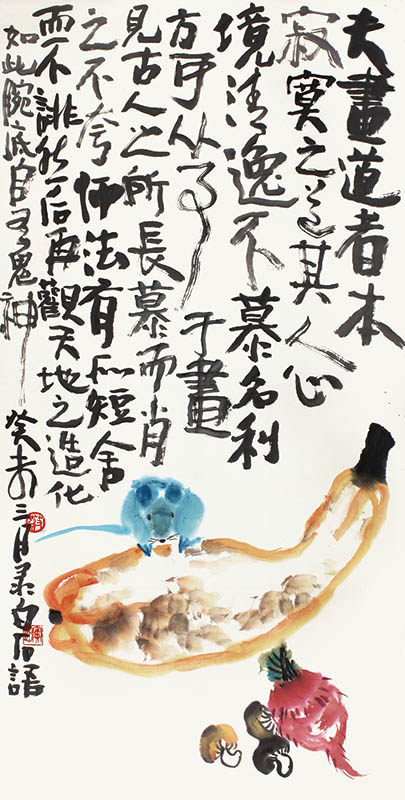 夫畫道者本
寂寞之道其人心
境清逸不慕名利
方可从事于畫
見古人之所長慕而肖
之不夸师法有所短舍
而不誹然后再觀天地之造化
如此腕底自有鬼神
癸未三月录白石語